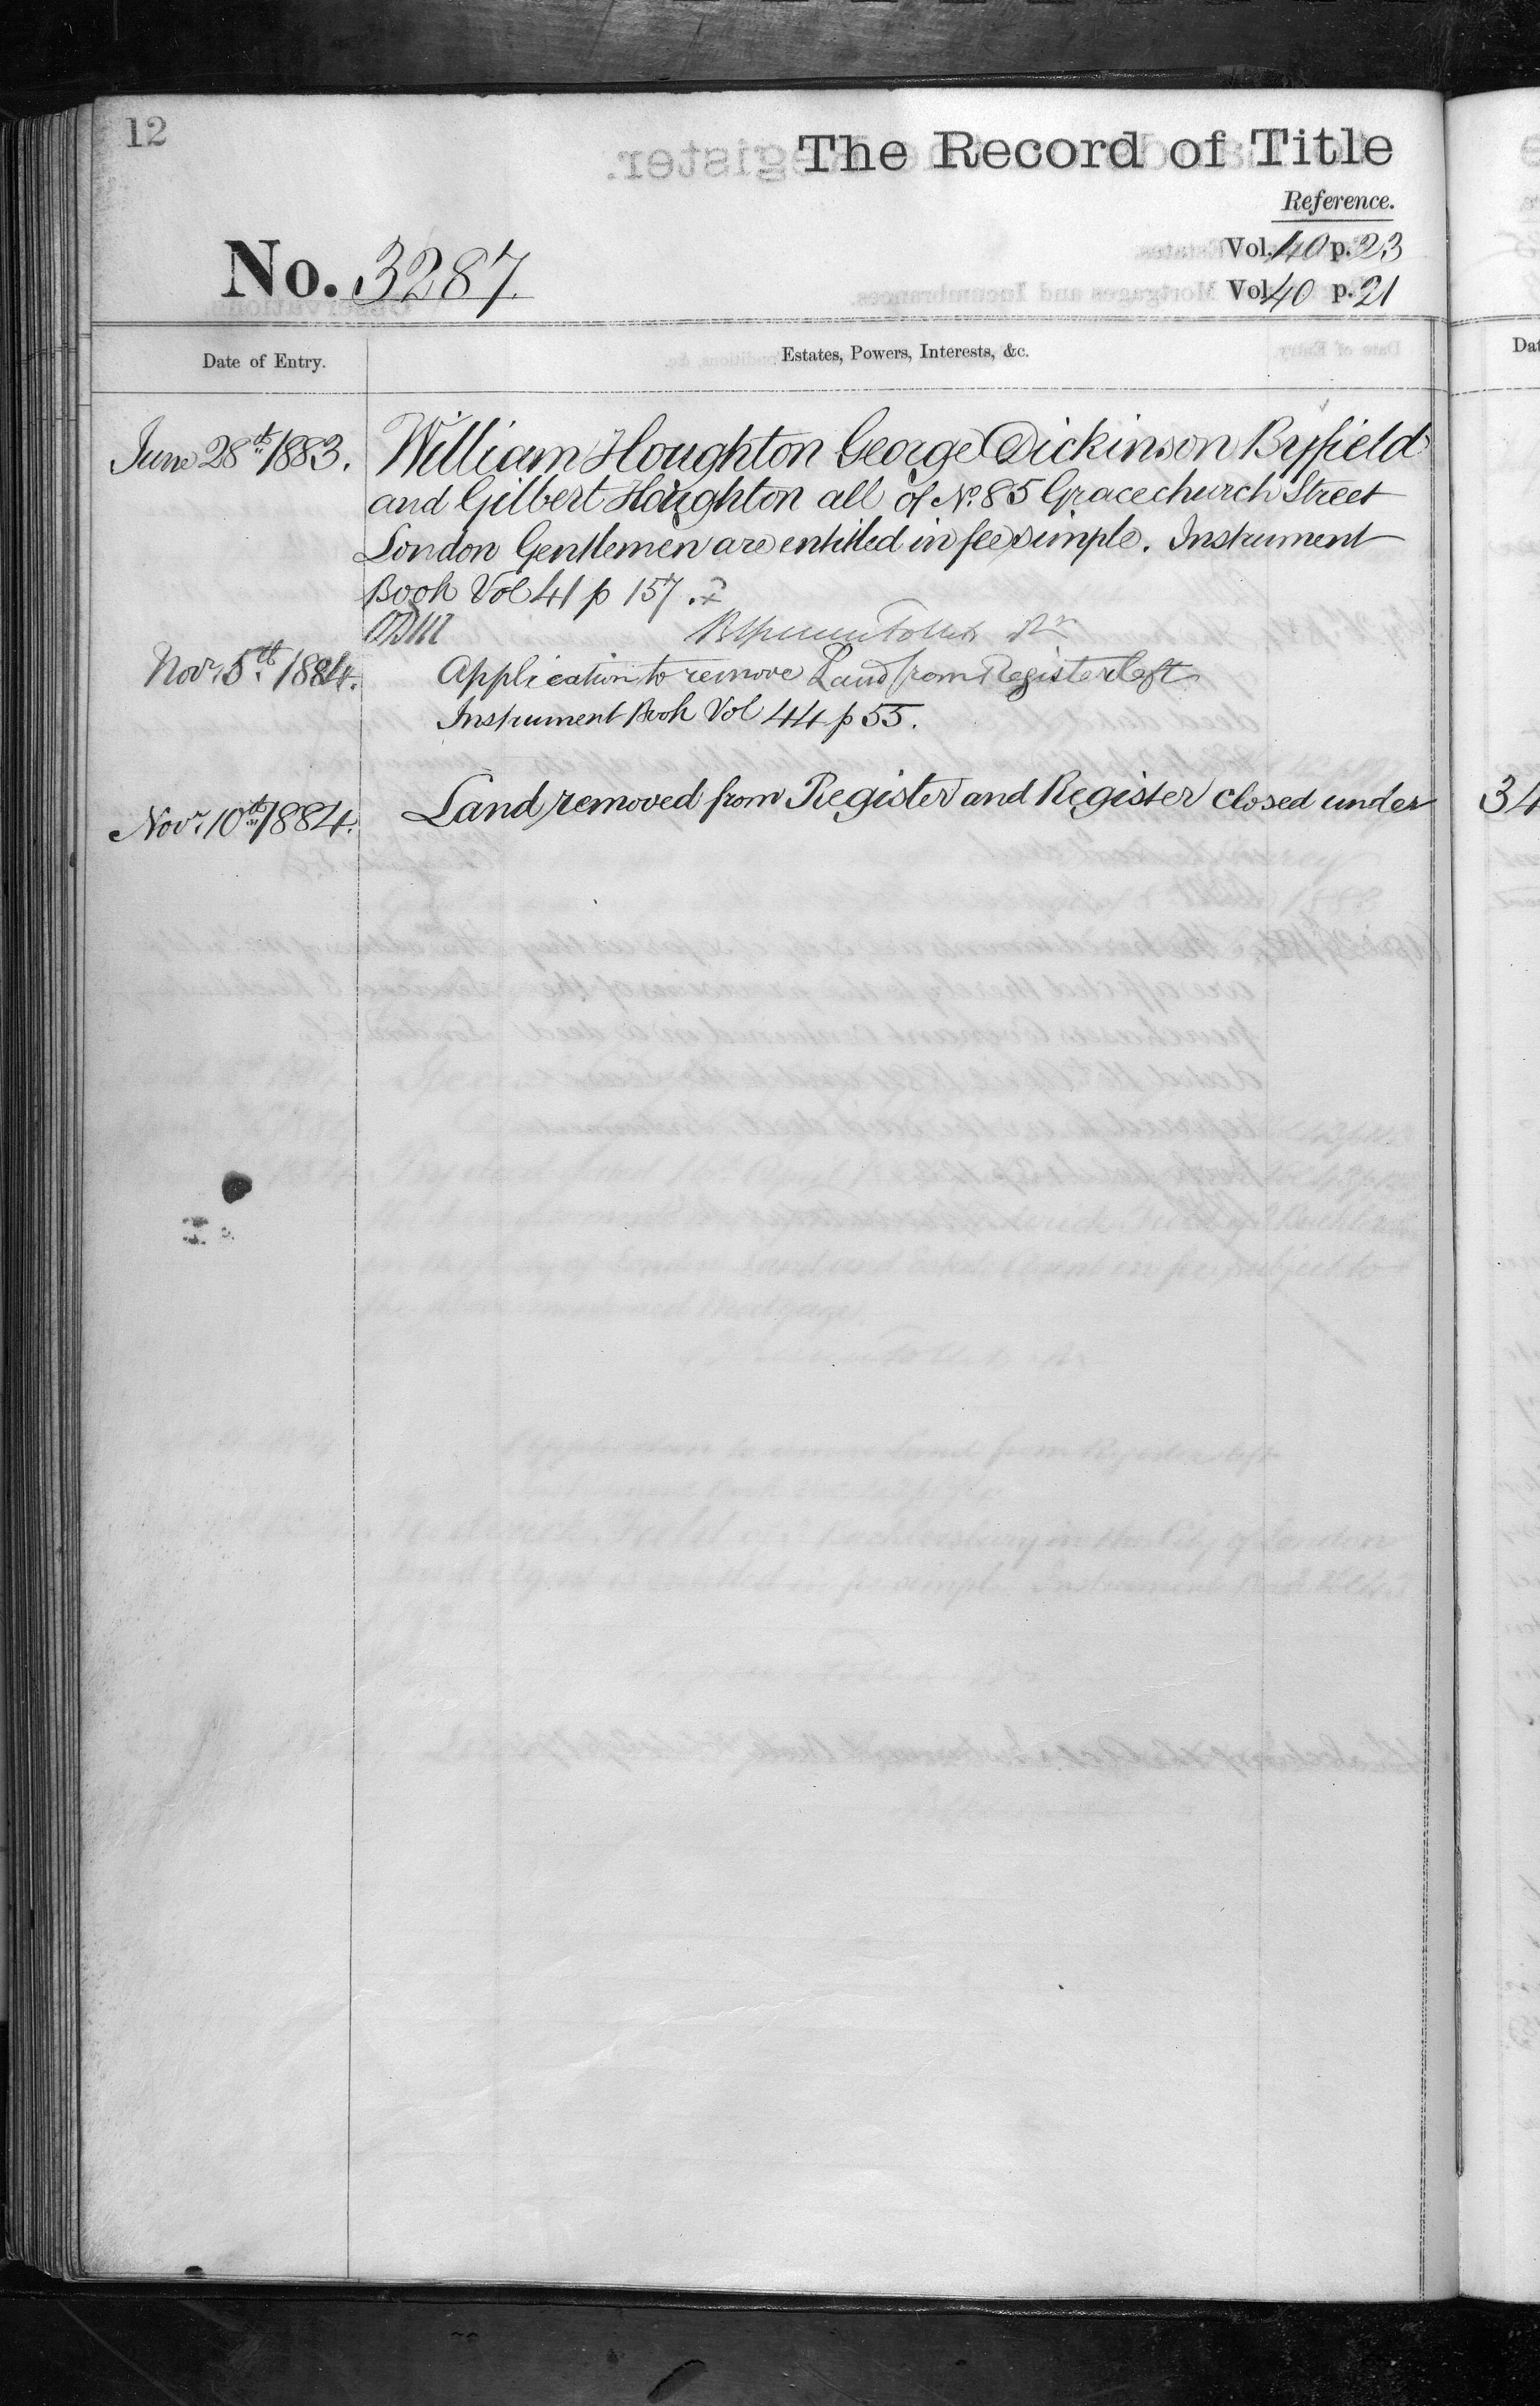 12
The Record of Title
Reference.
Vol. 40 p. 23
No. 3287.
Vol. 40 p. 21
Date of Entry.
Estates, Powers, Interests, &c.
June 28th 1883. William Houghton George Dickinson Byfield
and Gilbert Houghton all of No. 85 Gracechurch Street
London Gentlemen are entitled in fee simple. Instrument
Book Vol 41 p 157.
Novr. 5th 1884. Application to remove Land from Register left
Instrument Book Vol 44 p 55.
Novr. 10th 1884. Land removed from Register and Register closed under
34